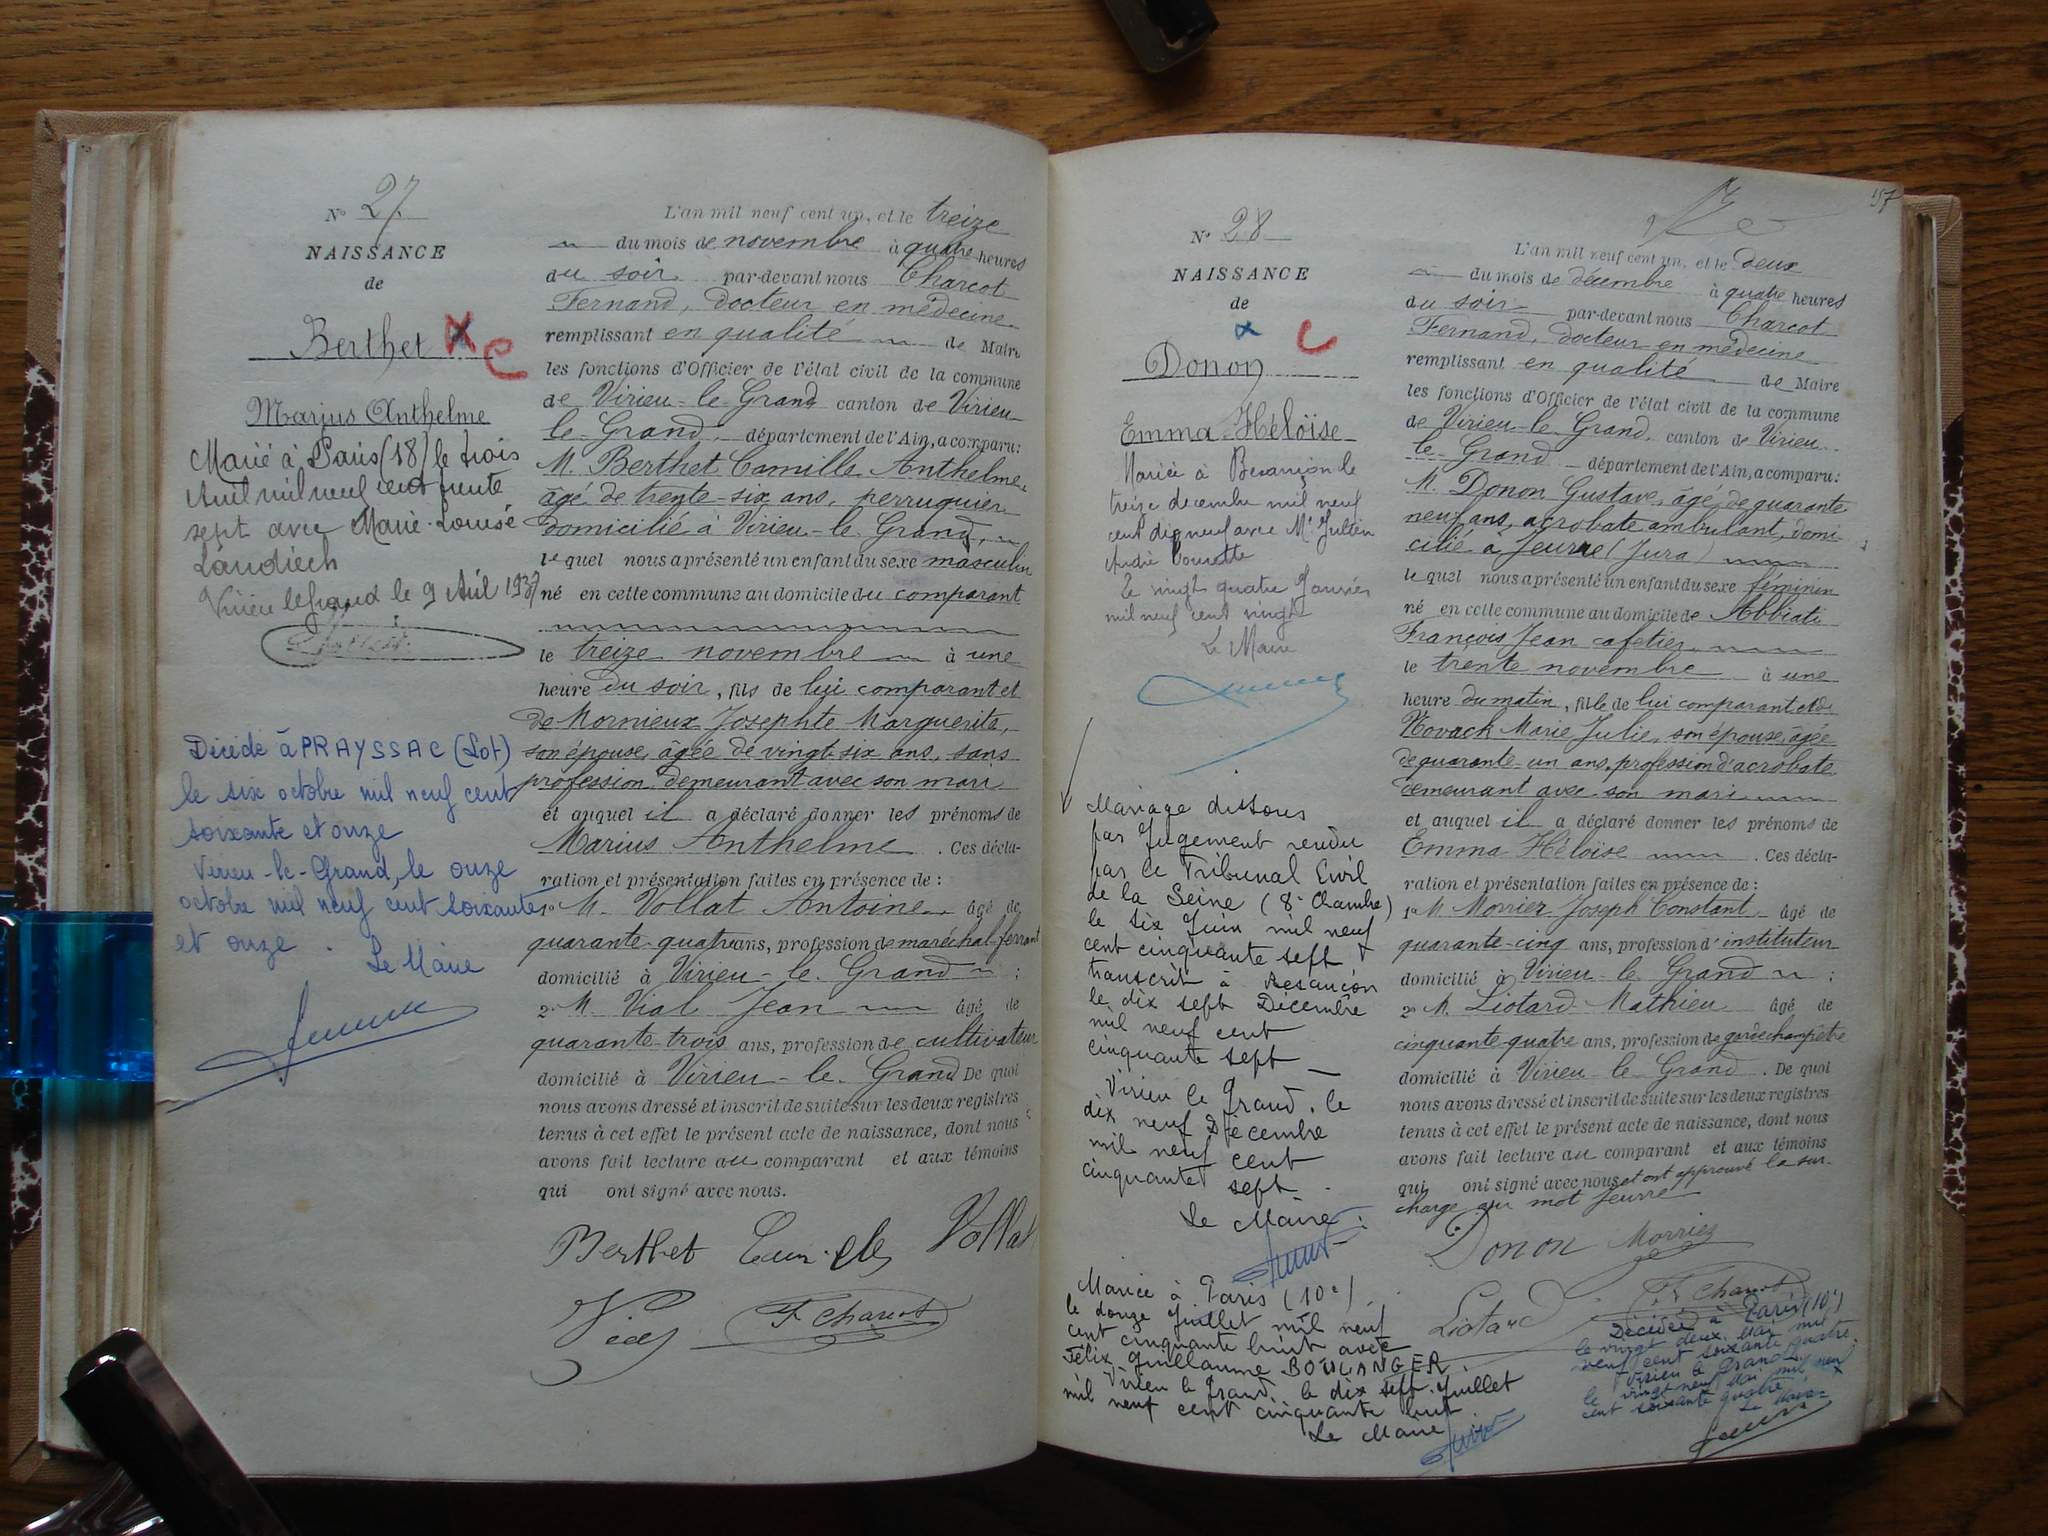 N° 27
NAISSANCE
de
Berthet
Marius Anthelme
Marié à Paris (18) le trois
Avril mil neuf cent trente
sept avec Marie-Louise
Landiech
Virieu le grand le 9 Avril 1937
Décédé à PRAYSSAC (Lot)
le six octobre mil neuf cent
soixante et onze
Virieu-le-Grand, le onze
octobre mil neuf cent soixante
et onze.
Le Maire
L'an mil neuf cent un, et le treize
du mois de novembre à quatre heures
du soir par-devant nous Charcot
Fernand, docteur en médecine
remplissant en qualité de Maire
les fonctions d'Officier de l'état civil de la commune
de Virieu-le-Grand canton de Virieu-
le-Grand, département de l'Ain, a comparu:
M. Berthet Camille Anthelme,
âgé de trente-six ans, perruquier
domicilié à Virieu-le-Grand,
lequel nous a présenté un enfant du sexe masculin
né en cette commune au domicile du comparant
le treize novembre à une
heure du soir, fils de lui comparant et
de Mornieux Josephte Marguerite,
son épouse, âgée de vingt-six ans, sans
profession demeurant avec son mari
et auquel il a déclaré donner les prénoms de
Marius Anthelme. Ces décla-
ration et présentation faites en présence de:
1° M. Vollat Antoine, âgé de
quarante-quatre ans, profession de maréchal-ferrant
domicilié à Virieu-le-Grand;
2° M. Vial Jean âgé de
quarante-trois ans, profession de cultivateur
domicilié à Virieu-le-Grand De quoi
nous avons dressé et inscrit de suite sur les deux registres
tenus à cet effet le présent acte de naissance, dont nous
avons fait lecture au comparant et aux témoins
qui ont signé avec nous.
Berthet Vollat
F Charcot
157
N° 28
NAISSANCE
de
C
Donon
Emma-Héloïse
Mariée à Besançon le
treize décembre mil neuf
cent dix neuf avec Mr Julien
André
Le vingt quatre Janvier
mil neuf cent vingt
Le Maire
Mariage dissous
par Jugement rendu
par le Tribunal Civil
de la Seine (8e Chambre)
le six Juin mil neuf
cent cinquante sept &
transcrit à Besançon
le dix sept Décembre
mil neuf cent
cinquante sept
Virieu le Grand, le
dix neuf Décembre
mil neuf cent
cinquante sept.
Le Maire:
Mariée à Paris (10e)
le douze Juillet mil neuf
cent cinquante huit avec
Félix Guillaume BOULANGER.
Virieu le Grand, le dix sept Juillet
mil neuf cent cinquante huit.
Le Maire
L'an mil neuf cent un, et le deux
du mois de décembre à quatre heures
du soir par-devant nous Charcot
Fernand, docteur en médecine
remplissant en qualité de Maire
les fonctions d'Officier de l'état civil de la commune
de Virieu-le-Grand, canton de Virieu-
le-Grand département de l'Ain, a comparu:
M. Donon Gustave, âgé de quarante-
neuf ans, acrobate ambulant, domi-
cilié à Jeurre (Jura)
lequel nous a présenté un enfant du sexe féminin
né en cette commune au domicile de Abbiati
François Jean cafetier
le trente novembre à une
heure du matin, fille de lui comparant et de
Novack Marie Julie, son épouse, âgée
de quarante-un ans, profession d'acrobate
demeurant avec son mari
et auquel il a déclaré donner les prénoms de
Emma-Héloïse. Ces décla-
ration et présentation faites en présence de:
1° M. Morriez Joseph Constant, âgé de
quarante-cinq ans, profession d'instituteur
domicilié à Virieu-le-Grand;
2° M. Liotard Mathieu âgé de
cinquante-quatre ans, profession de garde champêtre
domicilié à Virieu-le-Grand. De quoi
nous avons dressé et inscrit de suite sur les deux registres
tenus à cet effet le présent acte de naissance, dont nous
avons fait lecture au comparant et aux témoins
qui ont signé avec nous et ont approuvé la sur-
charge au mot Jeurre
Donon Morriez
Liotard F Charcot
Décédée à Paris (10e)
le vingt deux Mai mil
neuf cent soixante quatre.
Virieu le Grand,
le vingt neuf Mai mil neuf
cent soixante quatre
Le Maire